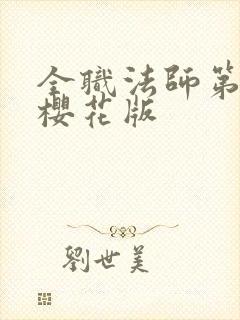 全職法師第
櫻花版
劉世美